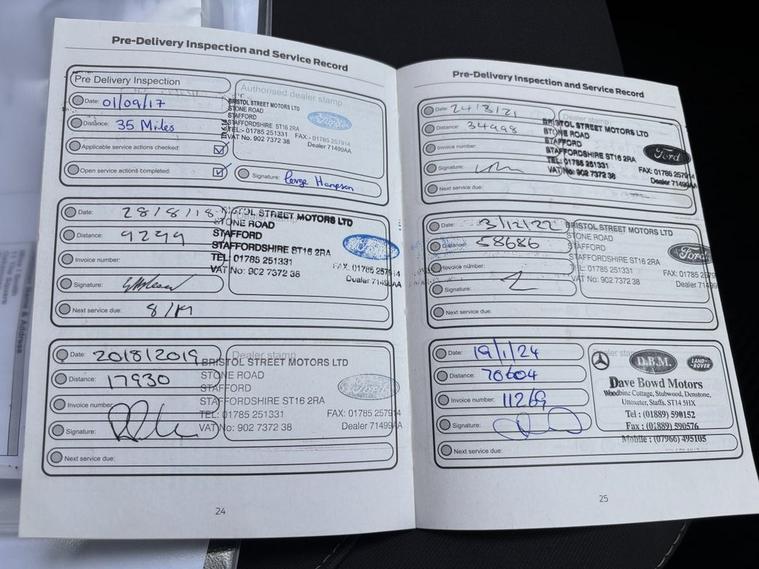 Pre-Delivery Inspection and Service Record
Pre Delivery Inspection
Authorised dealer stamp
Date: 01/09/17
Distance: 35 Miles
Applicable service actions checked:
Open service actions completed:
BRISTOL STREET MOTORS LTD
STONE ROAD
STAFFORD
STAFFORDSHIRE ST16 2RA
TEL: 01785 251331 FAX: 01785 257914
VAT No: 902 7372 38 Dealer 71499AA
Ford
Signature:
Date: 28/8/18
Distance: 9299
Invoice number:
Signature:
Next service due: 8/19
BRISTOL STREET MOTORS LTD
STONE ROAD
STAFFORD
STAFFORDSHIRE ST16 2RA
TEL: 01785 251331 FAX: 01785 257914
VAT No: 902 7372 38 Dealer 71499AA
Date: 20/8/2019
Distance: 17930
Invoice number:
Signature:
Next service due:
Dealer stamp
BRISTOL STREET MOTORS LTD
STONE ROAD
STAFFORD
STAFFORDSHIRE ST16 2RA
TEL: 01785 251331 FAX: 01785 257914
VAT No: 902 7372 38 Dealer 71499AA
24
Pre-Delivery Inspection and Service Record
Date: 24/3/21
Distance: 34998
Invoice number:
Signature:
Next service due:
BRISTOL STREET MOTORS LTD
STONE ROAD
STAFFORD
STAFFORDSHIRE ST16 2RA
TEL: 01785 251331 FAX: 01785 257914
VAT No: 902 7372 38 Dealer 71499AA
Ford
Date: 3/12/22
Distance: 58686
Invoice number:
Signature:
Next service due:
BRISTOL STREET MOTORS LTD
STONE ROAD
STAFFORD
STAFFORDSHIRE ST16 2RA
TEL: 01785 251331 FAX: 01785 257914
VAT No: 902 7372 38 Dealer 71499AA
Ford
Date: 19/1/24
Distance: 70604
Invoice number: 11269
Signature:
Next service due:
D.B.M.
LAND-ROVER
Dave Bowd Motors
Woodbine Cottage, Stubwood, Denstone,
Uttoxeter, Staffs. ST14 5HX
Tel : (01889) 590152
Fax : (01889) 590576
Mobile : (07966) 495105
25